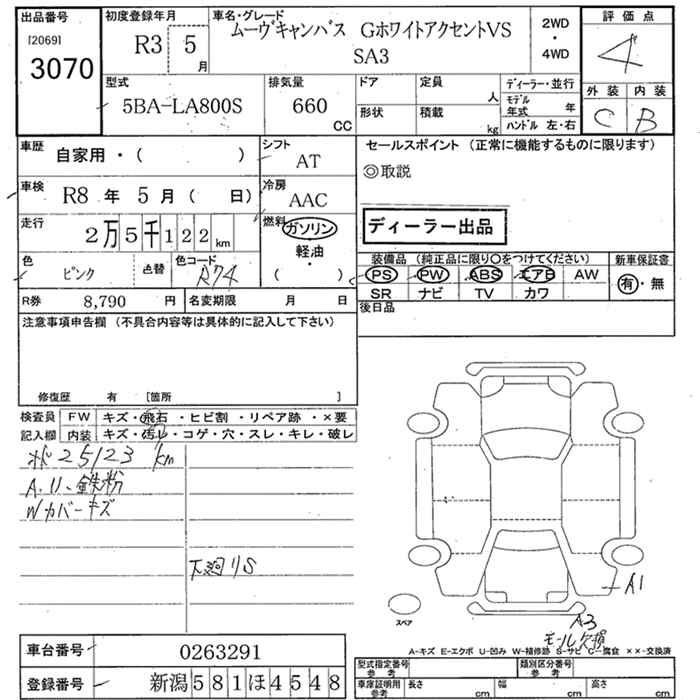 出品番号
[2069]
3070
初度登録年月
R3 5 月
車名・グレード
ムーヴキャンバス GホワイトアクセントVS
SA3
2WD
・
4WD
評価点
4
外装 内装
C B
型式
5BA-LA800S
排気量
660 cc
ドア
形状
定員 人
積載 kg
ディーラー・並行
モデル年式 年
ハンドル 左・右
車歴
自家用・( )
シフト
AT
車検
R8 年 5 月 ( 日)
冷房
AAC
走行
2万5千122 km
燃料
ガソリン
軽油
・
( )
色
ピンク
色替
色コード
R74
R券 8,790 円
名変期限 月 日
セールスポイント (正常に機能するものに限ります)
◎取説
ディーラー出品
装備品 (純正品に限り○をつけてください)
PS PW ABS エアB AW
SR ナビ TV カワ
新車保証書
有・無
後日品
注意事項申告欄 (不具合内容等は具体的に記入して下さい)
修復歴 有 [箇所 ]
検査員
記入欄
FW キズ・飛石・ヒビ割・リペア跡・×要
内装 キズ・汚レ・コゲ・穴・スレ・キレ・破レ
状25123 km
A.U、鉄粉
Wカバーキズ
下廻りS
A1
A3
モール欠損
スペア
A-キズ E-エクボ U-凹み W-補修跡 S-サビ C-腐食 ××-交換済
車台番号 0263291
登録番号 新潟581ほ4548
型式指定番号
参考
類別区分番号
参考
車庫証明用
参考
長さ cm
幅 cm
高さ cm